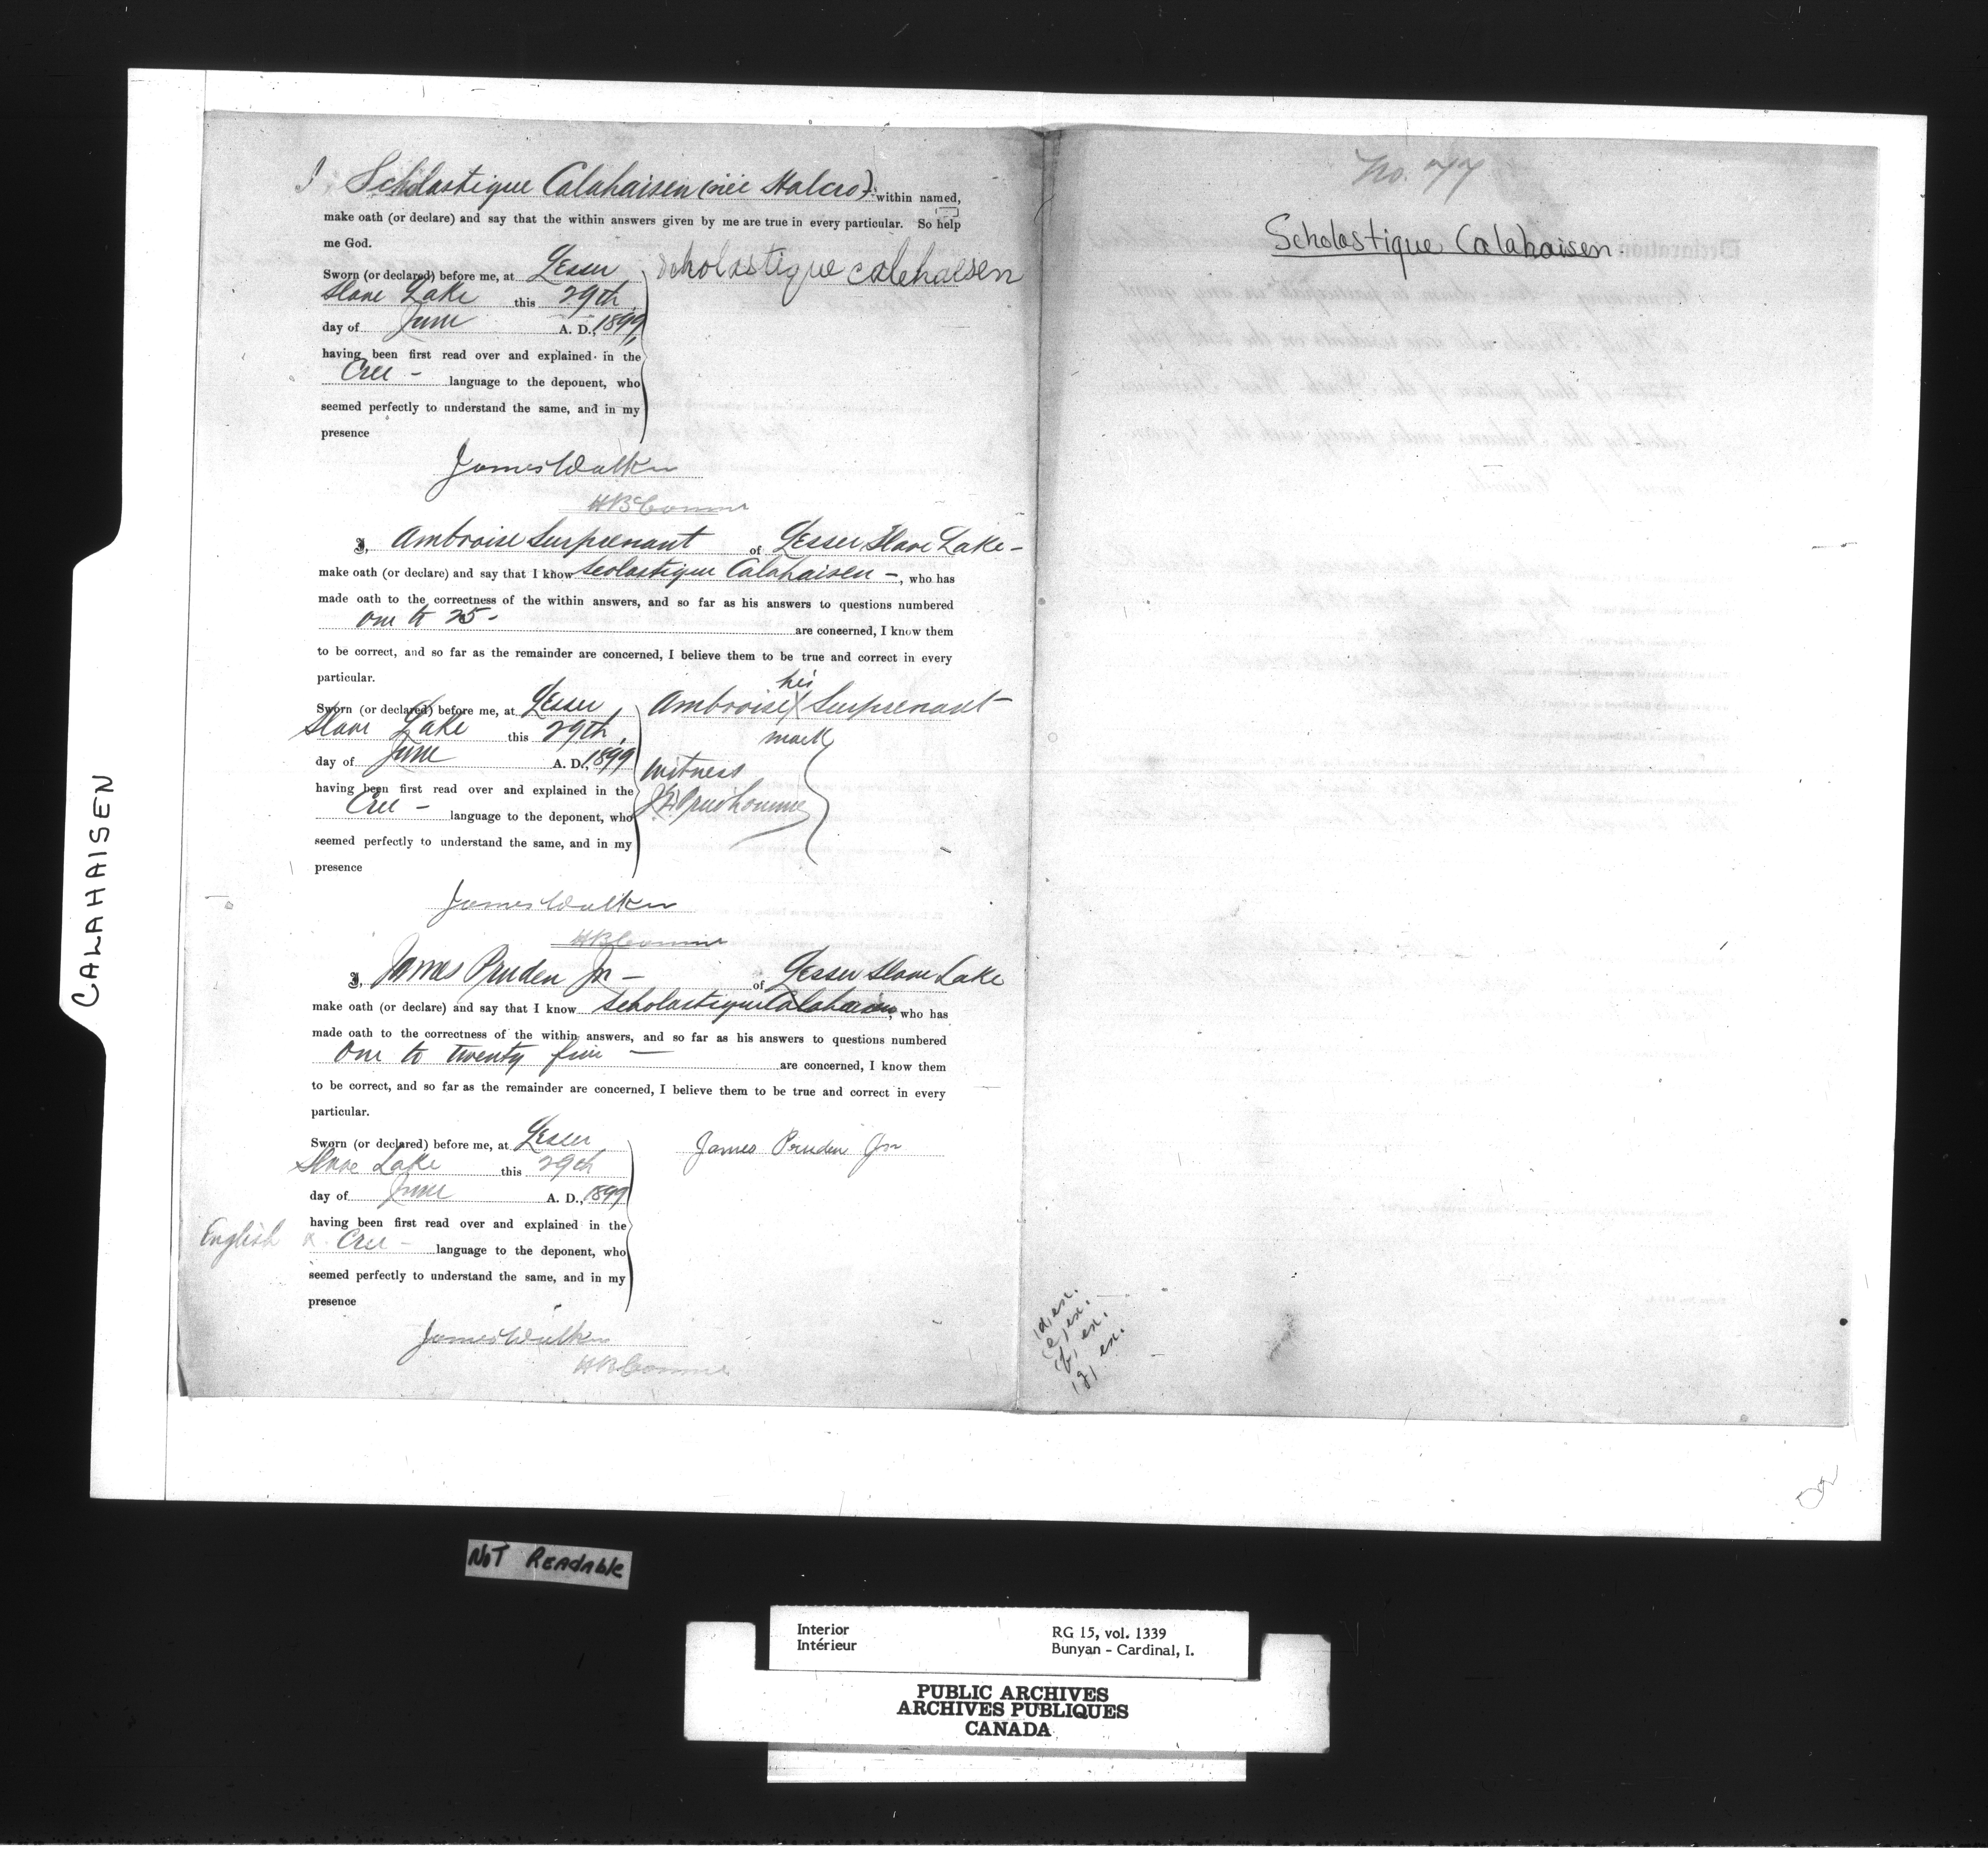 I, Scholastique Calahaisen (née Halcro) within named,
make oath (or declare) and say that the within answers given by me are true in every particular. So help
me God.
Sworn (or declared) before me, at Lesser
Slave Lake this 29th
day of June A. D., 1899,
having been first read over and explained in the
Cree - language to the deponent, who
seemed perfectly to understand the same, and in my
presence
scholastique calehaisen
James Walker
HB Comr
I, Ambroise Surprenant of Lesser Slave Lake -
make oath (or declare) and say that I know Scolastique Calahaisen -, who has
made oath to the correctness of the within answers, and so far as his answers to questions numbered
one to 25 - are concerned, I know them
to be correct, and so far as the remainder are concerned, I believe them to be true and correct in every
particular.
Sworn (or declared) before me, at Lesser
Slave Lake this 29th,
day of June A. D., 1899
having been first read over and explained in the
Cree - language to the deponent, who
seemed perfectly to understand the same, and in my
presence
his
Ambroise X Surprenant -
mark
Witness
Prudhomme
James Walker
HB Comr
I, James Pruden Jr - of Lesser Slave Lake
make oath (or declare) and say that I know Scholastique Calahaisen, who has
made oath to the correctness of the within answers, and so far as his answers to questions numbered
One to twenty five - are concerned, I know them
to be correct, and so far as the remainder are concerned, I believe them to be true and correct in every
particular.
Sworn (or declared) before me, at Lesser
Slave Lake this 29th
day of June A. D., 1899
having been first read over and explained in the
English & Cree - language to the deponent, who
seemed perfectly to understand the same, and in my
presence
James Pruden Jnr
James Walker
HB Comr
No. 77
Scholastique Calahaisen.
(d) ex.
(e) ex.
(f) ex.
(g) ex.
CALAHAISEN
NOT READABLE
Interior
Intérieur
RG 15, vol. 1339
Bunyan - Cardinal, I.
PUBLIC ARCHIVES
ARCHIVES PUBLIQUES
CANADA